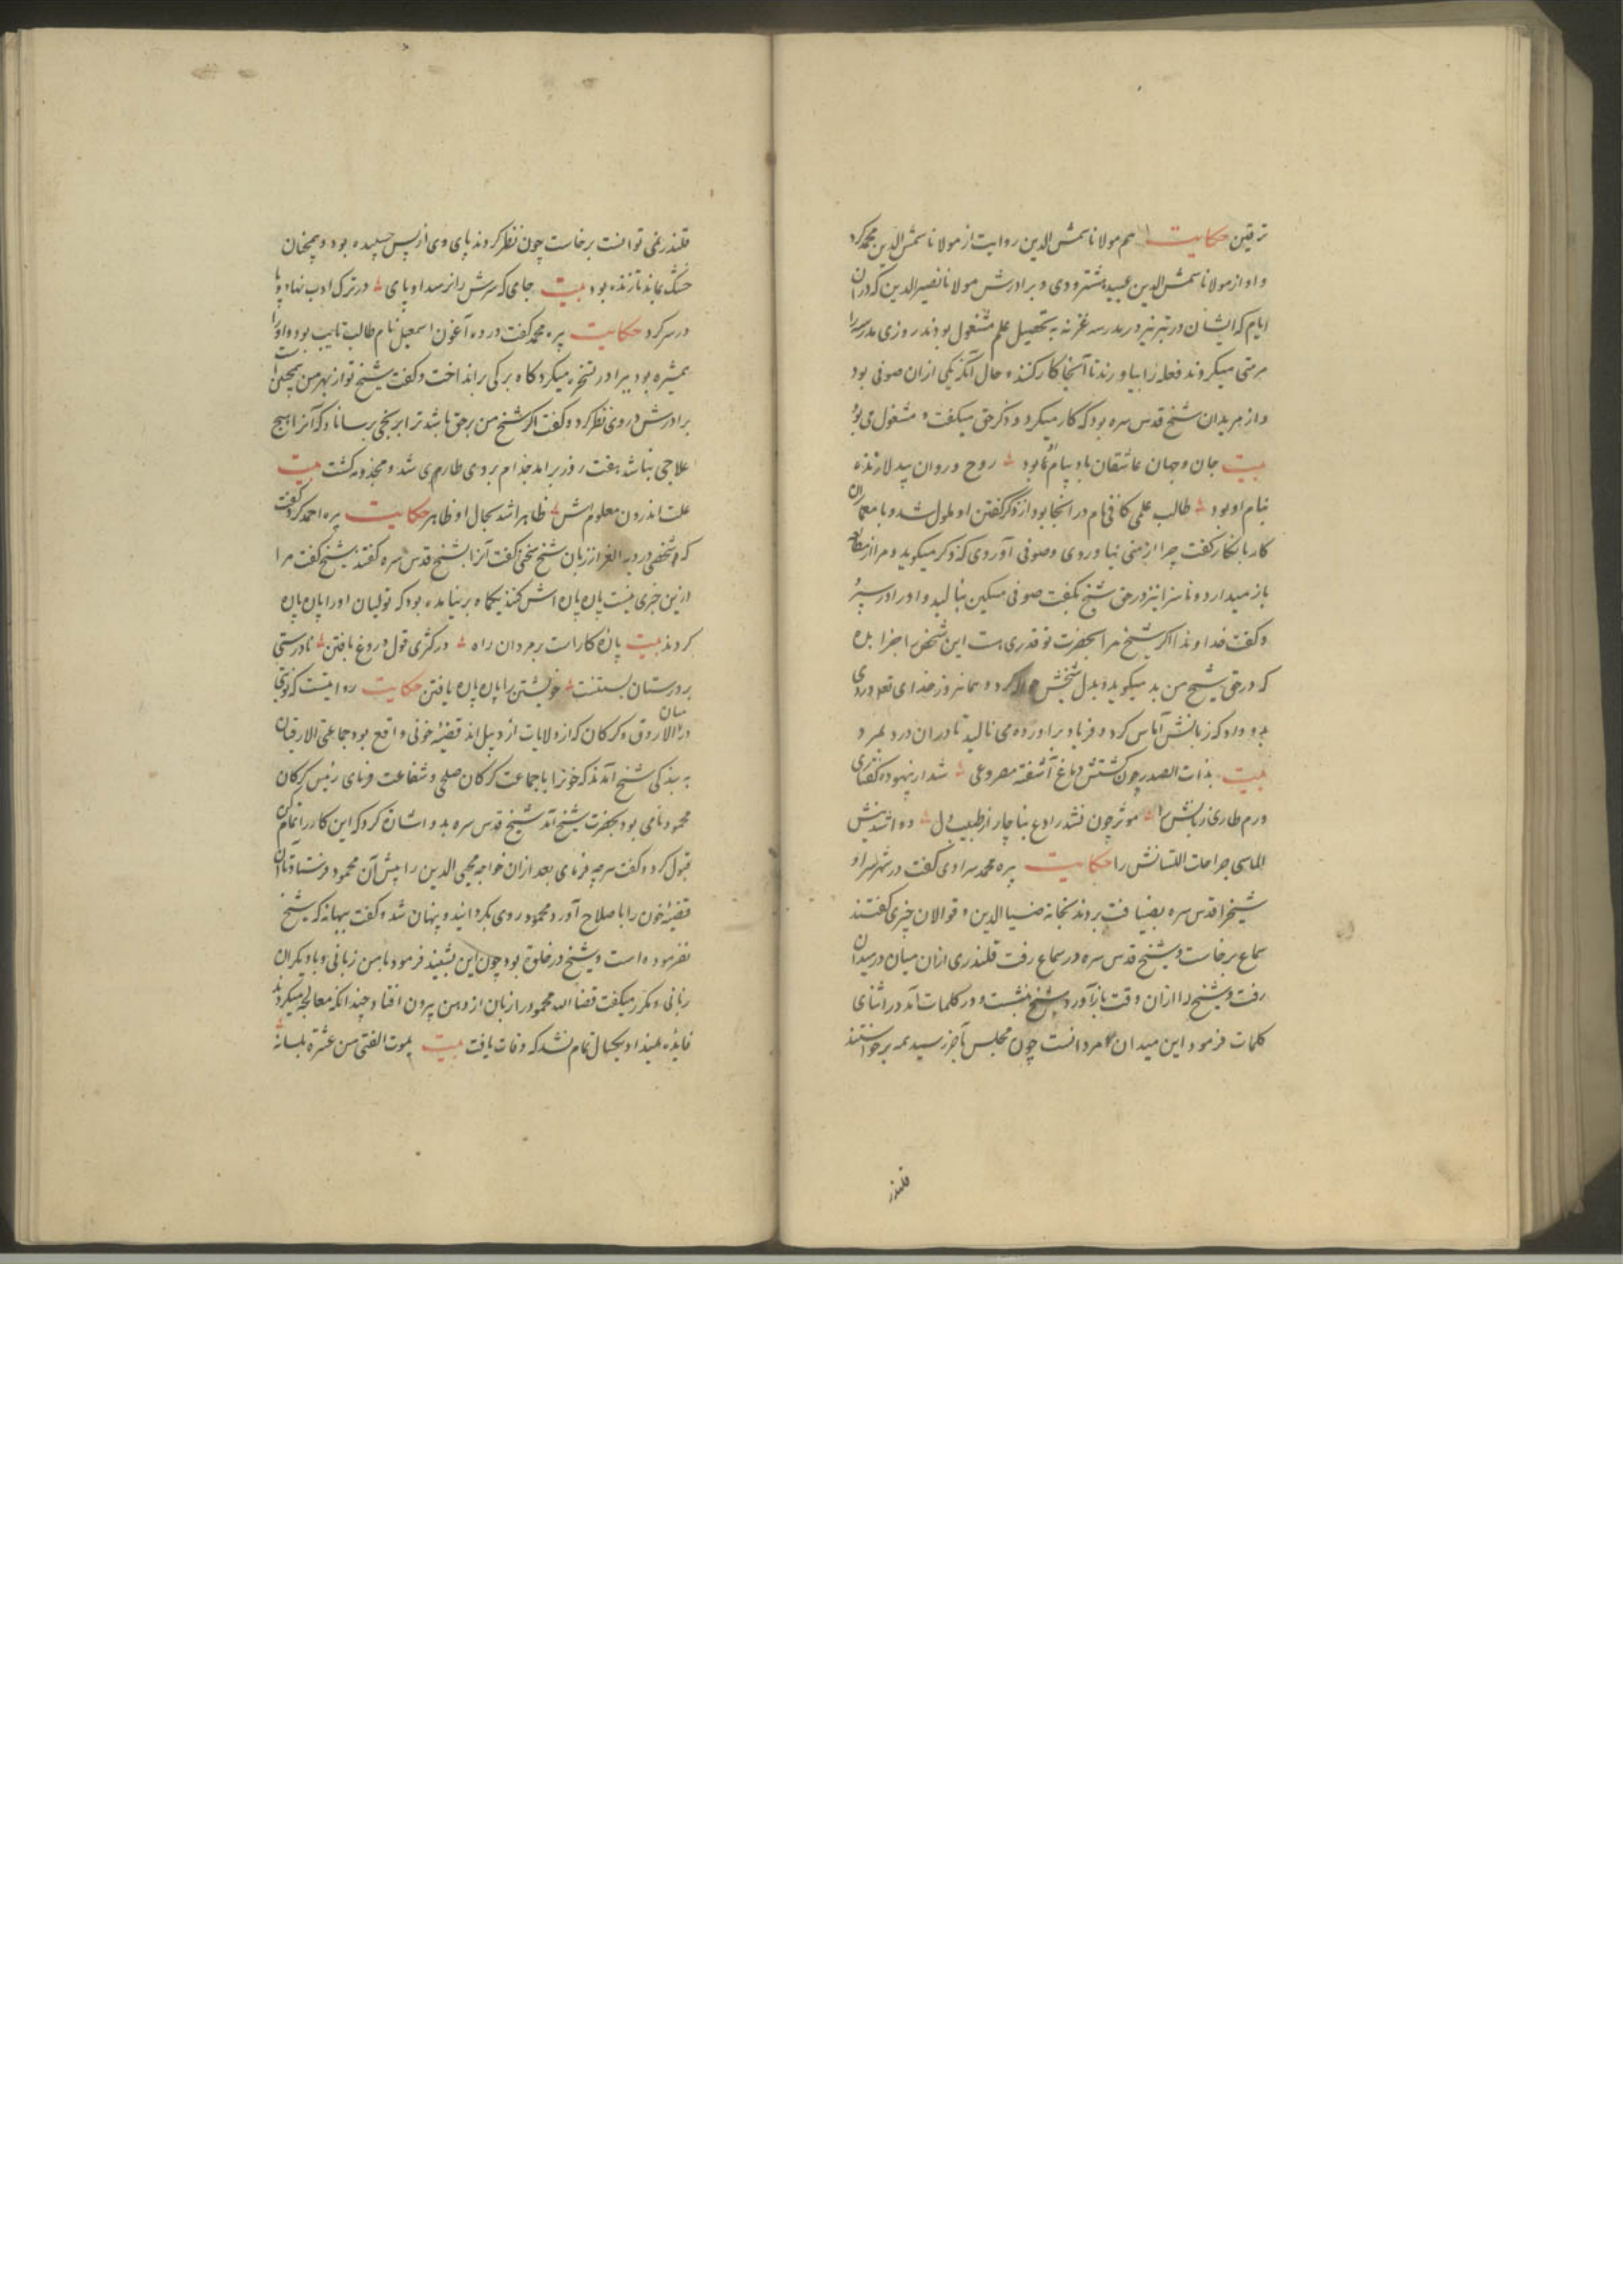 ترقین حکایت هم مولانا شمس الدین روایت از مولانا شمس الدین محمد کرد
و او از مولانا شمس الدین عبید هشترودی و برادرش مولانا نصیر الدین که دران
ایام که ایشان در تبریز در مدرسه غزنه به تحصیل علم مشغول بودند روزی مدرسه را
مرمتی میکردند فعله را بیاورند تا آنجا کار کنند و حال آنکه یکی ازان صوفی بود
و از مریدان شیخ قدس سره بود که کار میکرد و ذکر حق میکفت و مشغول می بود
بیت جان و جهان عاشقان باد بیام او بود روح و روان بیدلان زنده
بنام او بود طالب علمی کافی نام در انجا بود از ذکر گفتن او ملول شد و با معماران
کار بانکار کفت چرا ارمنی نیاوردی و صوفی آوردی که ذکر میکوید و مرا از مطالعه
باز میدارد و ناسزا نیز در حق شیخ بکفت صوفی مسکین بنالید و
و کفت خداوندا اکر شیخ مرا بحضرت تو قدری هست این شخص را جزا بده
که در حق شیخ من بد میکوید و بدل کرد و همانروز خدای تعه دردی
بدو داد که زبانش آماس کرد و فریاد برآورده می نالید تا دران درد بمرد
بیت بذات الصدر چون کشتش دماغ آشفته مصروعی شد از بیهوده گفتاری
ورم طاری زبانش را موثر چون نشد رادع بناچار از طبیب دل دوا شد نیش
الماسی جراحات اللسانش را حکایت پیره محمد سراوی کفت در شهر سراو
شیخ را قدس سره بضیافت بردند بخانه ضیا الدین و قوالان چیزی کفتند
سماع برخاست و شیخ قدس سره در سماع رفت قلندری ازان میان در میدان
رفت و شیخ را ازان وقت باز آورد شیخ بنشست و در کلمات آمد در اثنای
کلمات فرمود این میدان مردانست چون مجلس بآخر رسید همه برخواستند
قلندر
قلندر نمی توانست برخاست چون نظر کردند پای وی از پس چسبیده بود و همچنان
خشک بماند تا زنده بود بیت جای که سرش را نرسد او پای در ترک ادب نهاد و پا
در سر کرد حکایت پیره محمد کفت در ده آغون اسمعیل نام طالب تایب بود و او را
همشیره بود برادر تسخر میکرد کاه برکی برانداخت و کفت شیخ تو از بهر من همچنین است
برادرش در وی نظر کرد و کفت اکر شیخ من بر حق باشد ترا برنجی برساناد که آنرا هیچ
علاجی نباشد هفت روز برآمد جذام بر وی طاری شد و مجذومه کشت بیت
علت اندرون معلومش ظاهرا شد بحال او ظاهر حکایت پیره احمد کرد کفت
که شخصی در از زبان شیخ سخنی کفت آنرا بشیخ قدس سره کفتند شیخ کفت مرا
ازین خبری نیست پاره پاره اش کنند یکماه برنیامده بود که تولیان او را پاره پاره
کردند بیت پاره کارات بر مردان راه در کژی قول دروغ بافتن نادرستی
بر درستان بستنت خویشتن را پاره پاره یافتن حکایت روایتست که وقتی
میان
در الاروق و کرکان که از ولایات اردبیل اند قضیه خونی واقع بود جماعتی الارقیان
به بندکی شیخ آمدند که خونرا با جماعت کرکان صلحی و شفاعت فرمای رئیس کرکان
محمود نامی بود بحضرت شیخ آمد شیخ قدس سره بدو اشارت کرد که این کار را تمام کن
قبول کرد و کفت هر چه فرمای بعد ازان خواجه محیی الدین را پیش آن محمود فرستاد تا آن
قضیه خون را باصلاح آورد محمود روی بکردانید و پنهان شد و کفت ببهانه که شیخ
نفرموده است و شیخ در خلوة بود چون این بشنید فرمود با من زبانی و با دیکران
زبانی و مکرر میکفت قضا الله محمود را زبان از دهن بیرون افتاد چندانکه معالجه میکردند
فایده نمیداد و یکسال تمام نشد که وفات یافت بیت یموت الفتی من عثرة بلسانه